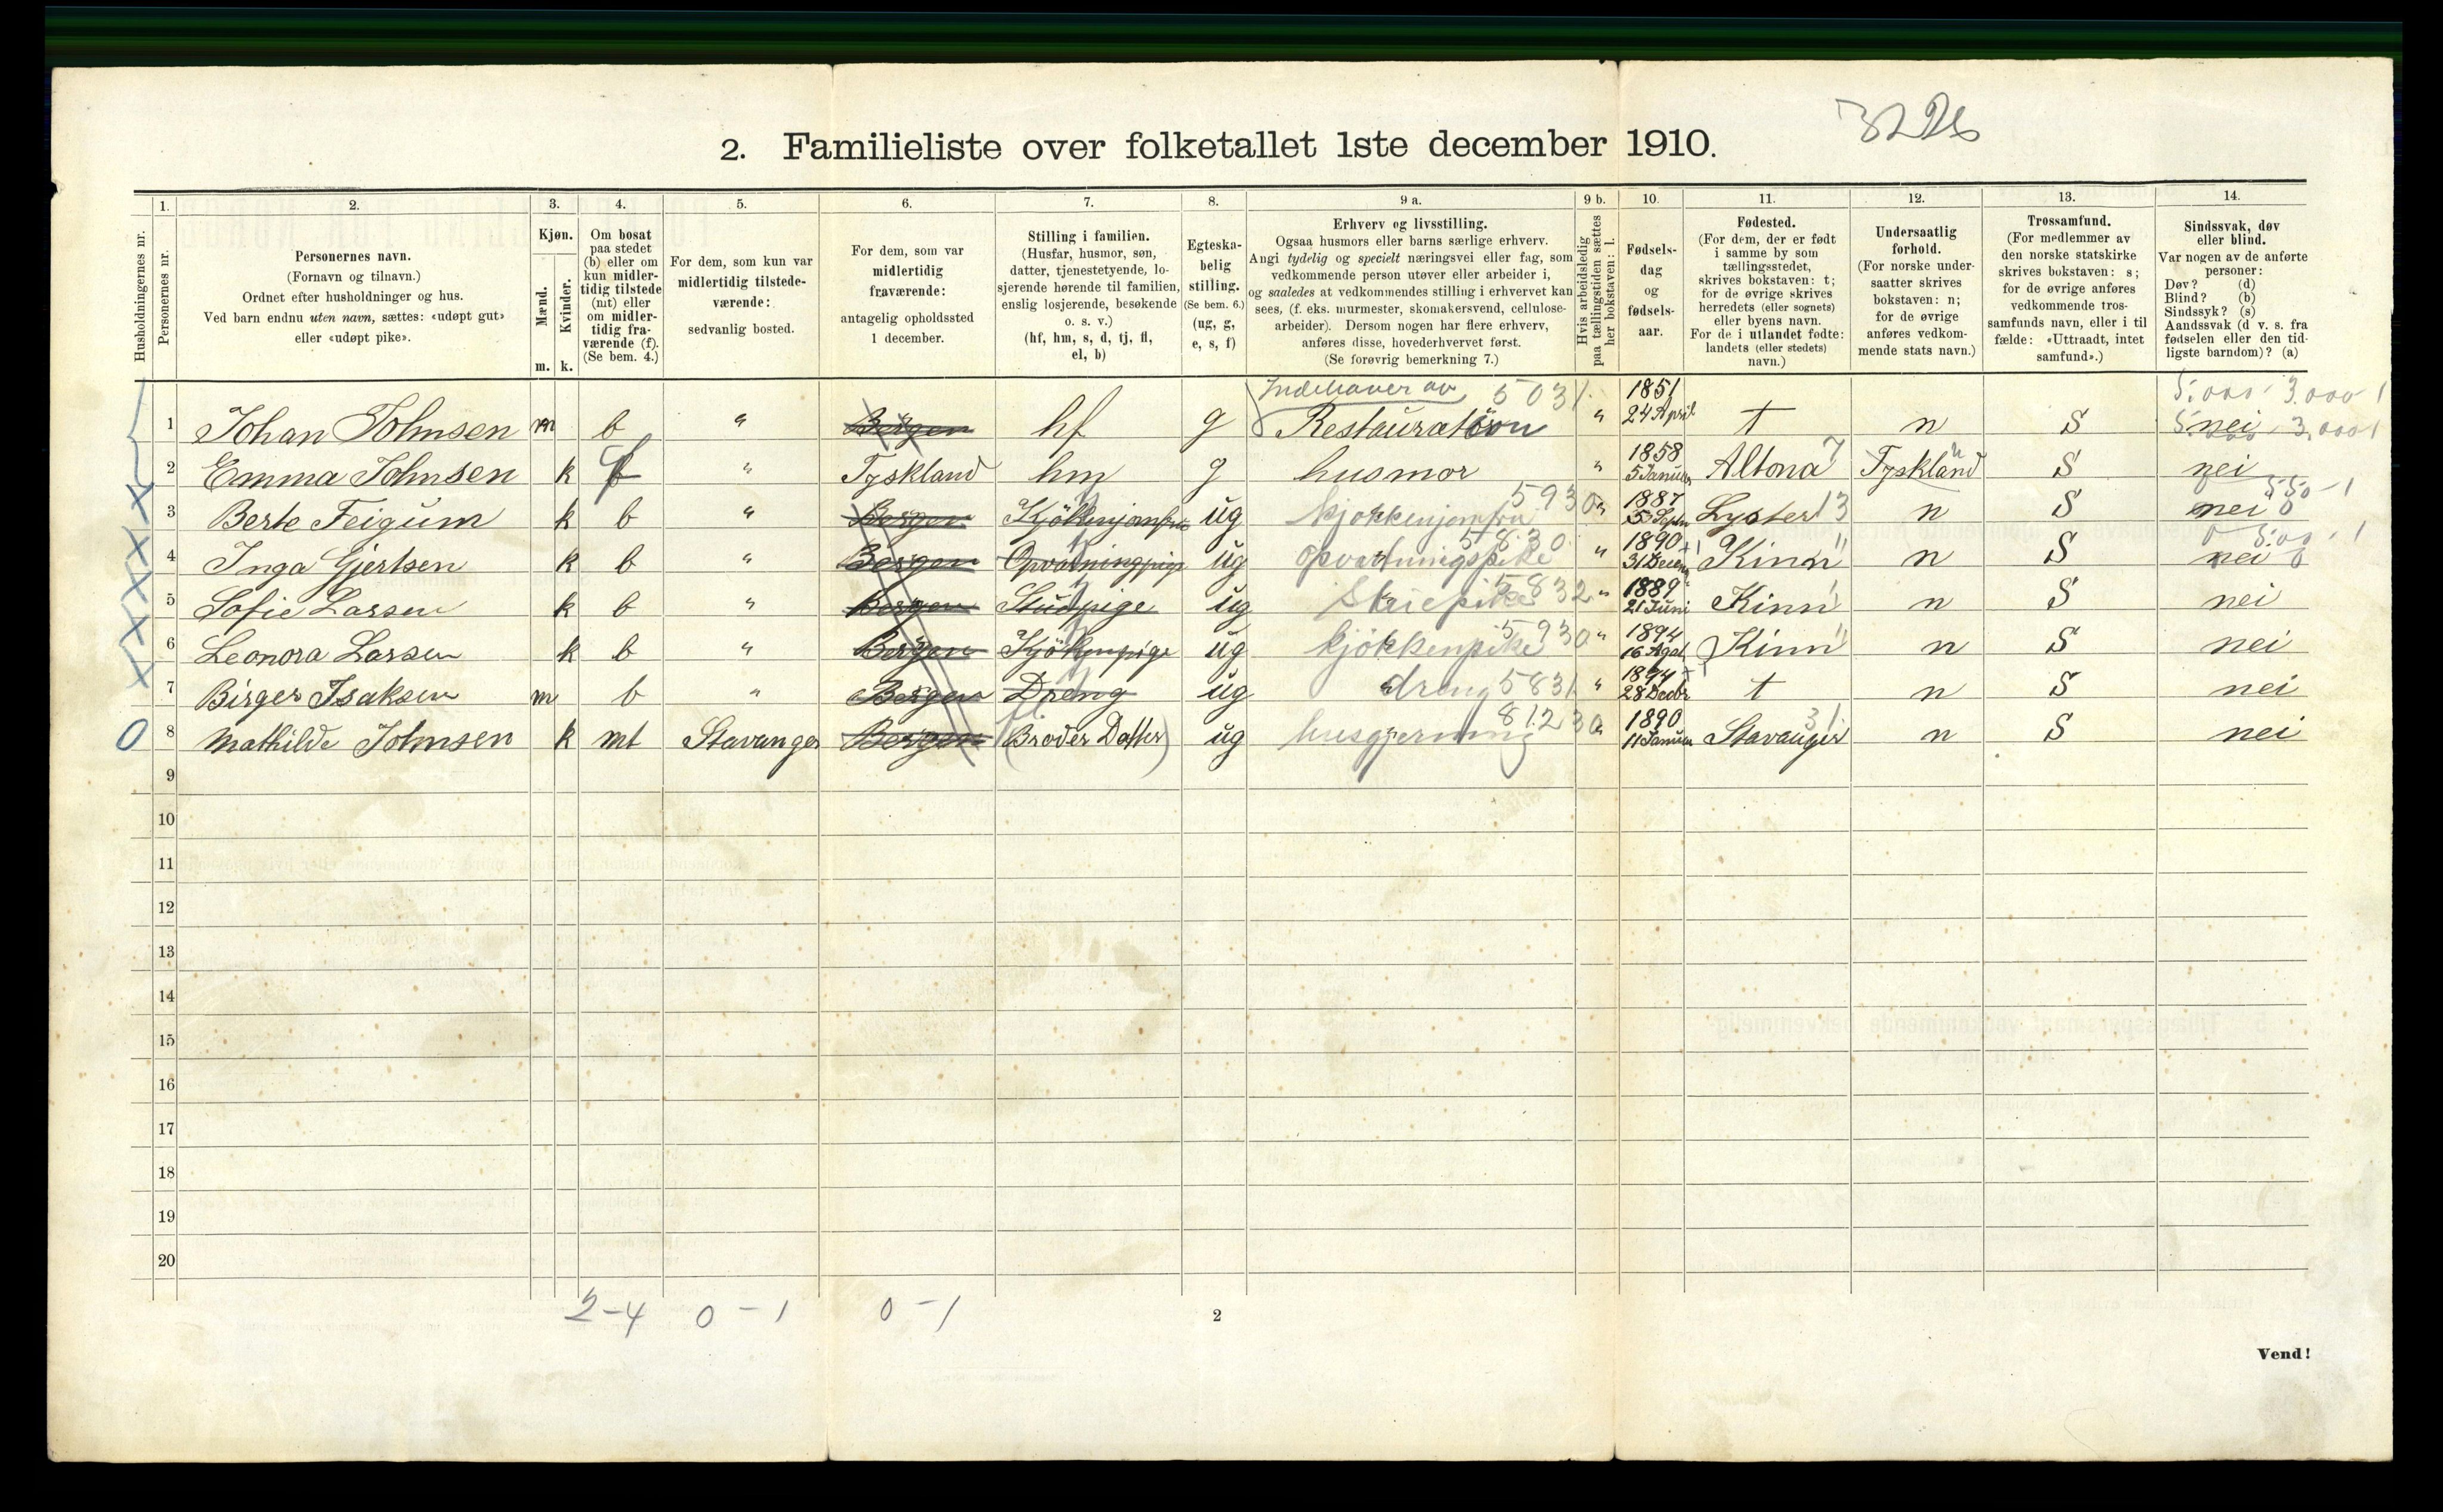 3226
2. Familieliste over folketallet 1ste december 1910.
Husholdningernes nr.
1. Personernes nr.
2. Personernes navn. (Fornavn og tilnavn.) Ordnet efter husholdninger og hus. Ved barn endnu uten navn, sættes: «udøpt gut» eller «udøpt pike».
3. Kjøn. Mænd. m. Kvinder. k.
4. Om bosat paa stedet (b) eller om kun midlertidig tilstede (mt) eller om midlertidig fraværende (f). (Se bem. 4.)
5. For dem, som kun var midlertidig tilstedeværende: sedvanlig bosted.
6. For dem, som var midlertidig fraværende: antagelig opholdssted 1 december.
7. Stilling i familien. (Husfar, husmor, søn, datter, tjenestetyende, losjerende hørende til familien, enslig losjerende, besøkende o. s. v.) (hf, hm, s, d, tj, fl, el, b)
8. Egteskabelig stilling. (Se bem. 6.) (ug, g, e, s, f)
9 a. Erhverv og livsstilling. Ogsaa husmors eller barns særlige erhverv. Angi tydelig og specielt næringsvei eller fag, som vedkommende person utøver eller arbeider i, og saaledes at vedkommendes stilling i erhvervet kan sees, (f. eks. murmester, skomakersvend, cellulosearbeider). Dersom nogen har flere erhverv, anføres disse, hovederhvervet først. (Se forøvrig bemerkning 7.)
9 b. Hvis arbeidsledig paa tællingstiden sættes her bokstaven: l.
10. Fødselsdag og fødselsaar.
11. Fødested. (For dem, der er født i samme by som tællingsstedet, skrives bokstaven: t; for de øvrige skrives herredets (eller sognets) eller byens navn. For de i utlandet fødte: landets (eller stedets) navn.)
12. Undersaatlig forhold. (For norske undersaatter skrives bokstaven: n; for de øvrige anføres vedkommende stats navn.)
13. Trossamfund. (For medlemmer av den norske statskirke skrives bokstaven: s; for de øvrige anføres vedkommende trossamfunds navn, eller i tilfælde: «Uttraadt, intet samfund».)
14. Sindssvak, døv eller blind. Var nogen av de anførte personer: Døv? (d) Blind? (b) Sindssyk? (s) Aandssvak (d v. s. fra fødselen eller den tidligste barndom)? (a)
Indehaver av 5031 5.000 3.000 1
1 Johan Johnsen m b " Bergen hf g Restauration " 1851 24 April t n S nei 5.000 3.000 1
2 Emma Johnsen k f " Tyskland hm g husmor " 1858 5 Januar Altona 7 Tyskland n S nei
3 Berte Feigum k b " Bergen Kjökkenjomfru ug kjøkkenjomfru 5930 " 1887 5 Septr Lyster 13 n S nei 550-1
4 Inga Gjertsen k b " Bergen Opvartningpige ug opvartningspike 5830 " 1890 31 Decem Kinn n S nei 500-1
5 Sofie Larsen k b " Bergen Stuepige ug 5832 " 1889 21 Juni Kinn n S nei
6 Leonora Larsen k b " Bergen Kjökkenpige ug kjökkenpike 5930 " 1894 16 Agst Kinn n S nei
7 Birger Isaksen m b " Bergen Dreng ug dreng 5831 " 1894 28 Decbr t n S nei
8 Mathilde Johnsen k mt Stavanger Bergen (Broder Datter) ug husgjerning 8123 " 1890 11 Januar Stavanger 31 n S nei
9
10
11
12
13
14
15
16
17
18
19
20
2-4 0-1 0-1
2
Vend!